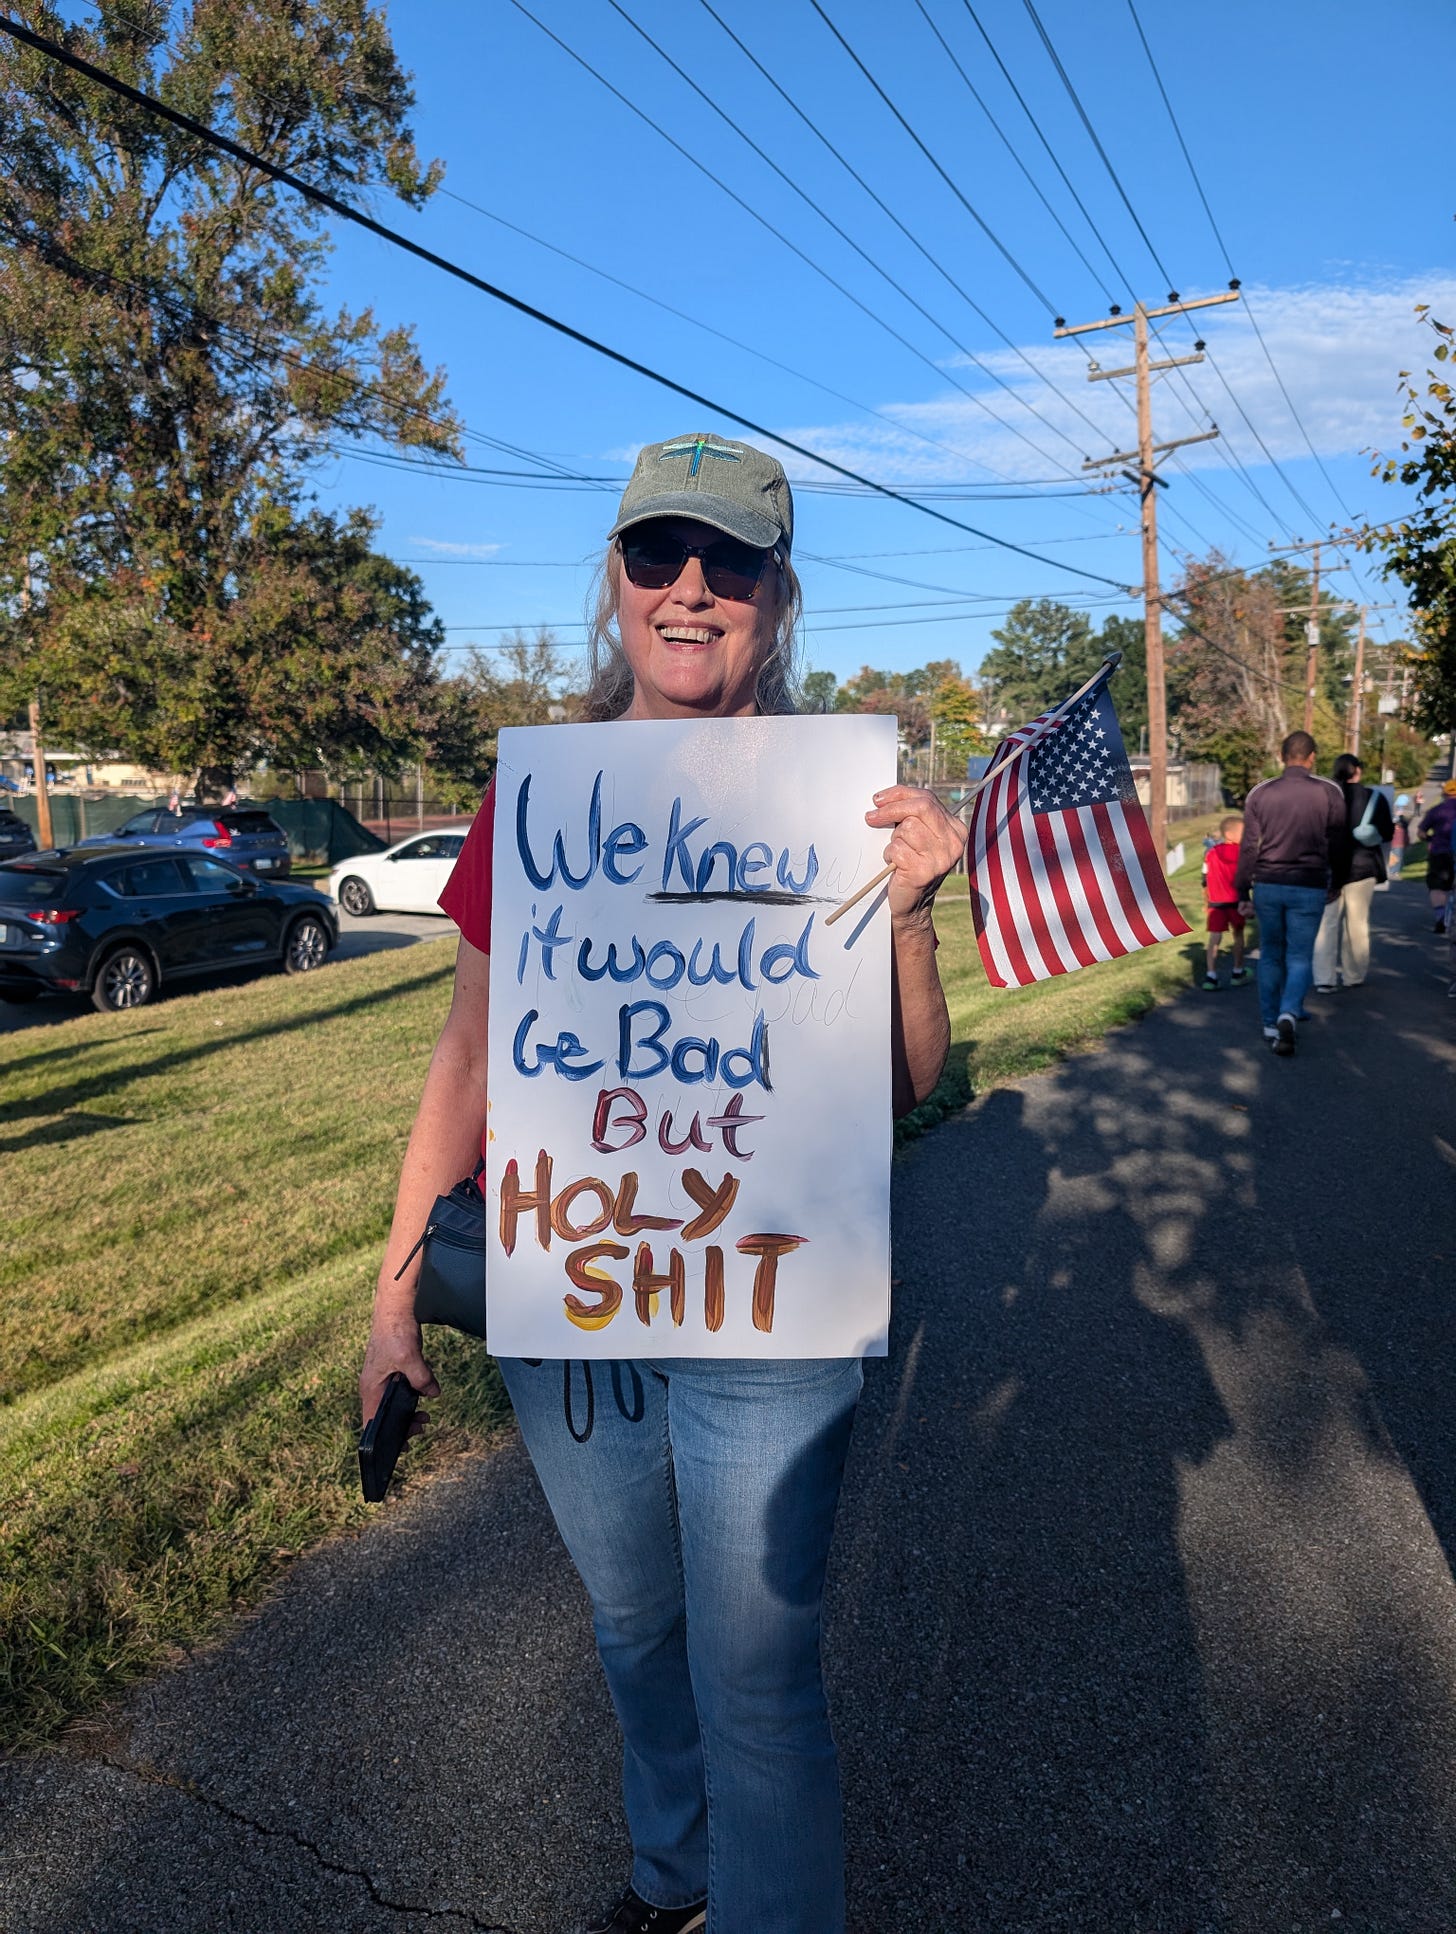 We knew
it would
be Bad
But
HOLY
SHIT